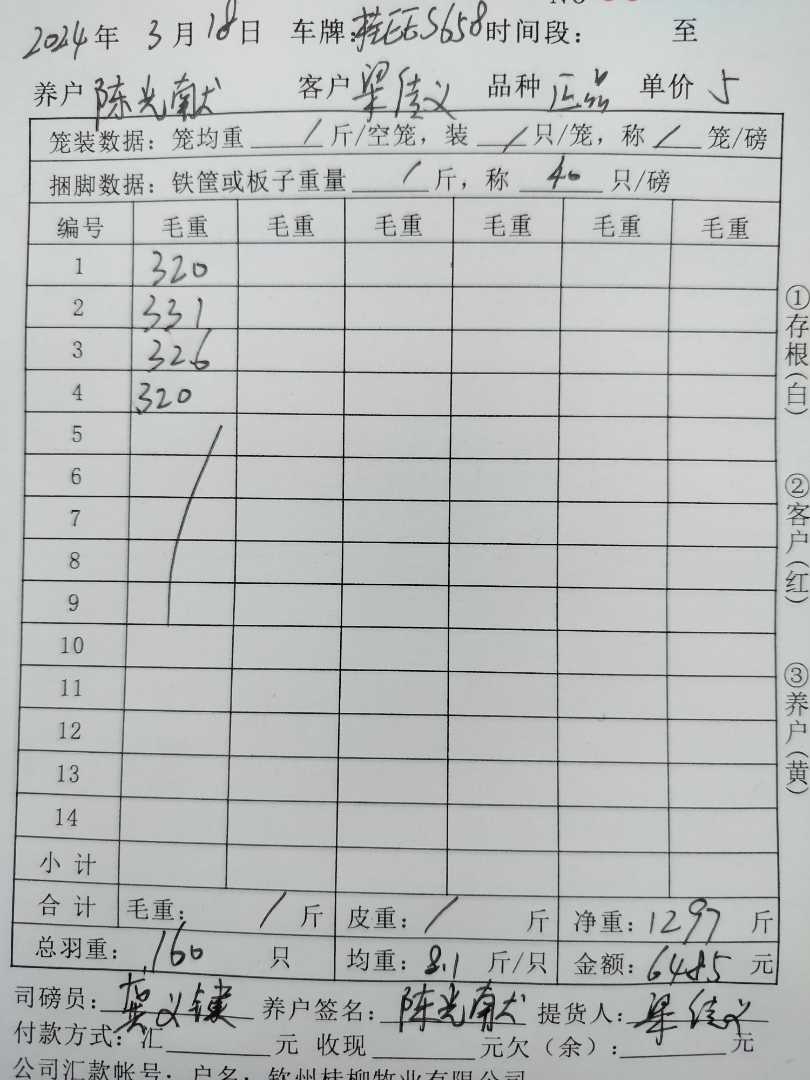 No
2024年 3月18日 车牌:桂EES658 时间段: 至
养户 陈光献 客户 梁信义 品种 正品 单价 5
笼装数据: 笼均重 / 斤/空笼, 装 / 只/笼, 称 / 笼/磅
捆脚数据: 铁筐或板子重量 / 斤, 称 40 只/磅
编号 毛重 毛重 毛重 毛重 毛重 毛重
1 320
2 331
3 326
4 320
5
6
7
8
9
10
11
12
13
14
小计
合计 毛重: / 斤 皮重: / 斤 净重: 1297 斤
总羽重: 160 只 均重: 8.1 斤/只 金额: 6485 元
司磅员: 义 养户签名: 陈光献 提货人: 梁信义
付款方式: 汇 元 收现 元欠(余): 元
公司汇款帐号: 户名: 钦州桂柳牧业有限公司
①存根(白)
②客户(红)
③养户(黄)